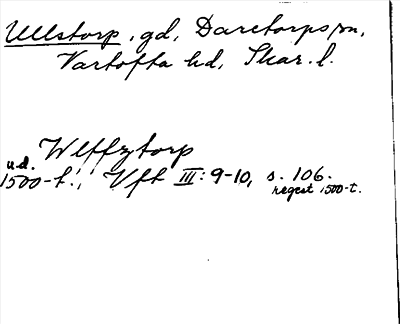 Ullstorp, gd, Daretorps sn,
Vartofta hd, Skar. l.
Wlffztorp
u.d.
1500-t.; Vft III: 9-10, s. 106.
regest 1500-t.